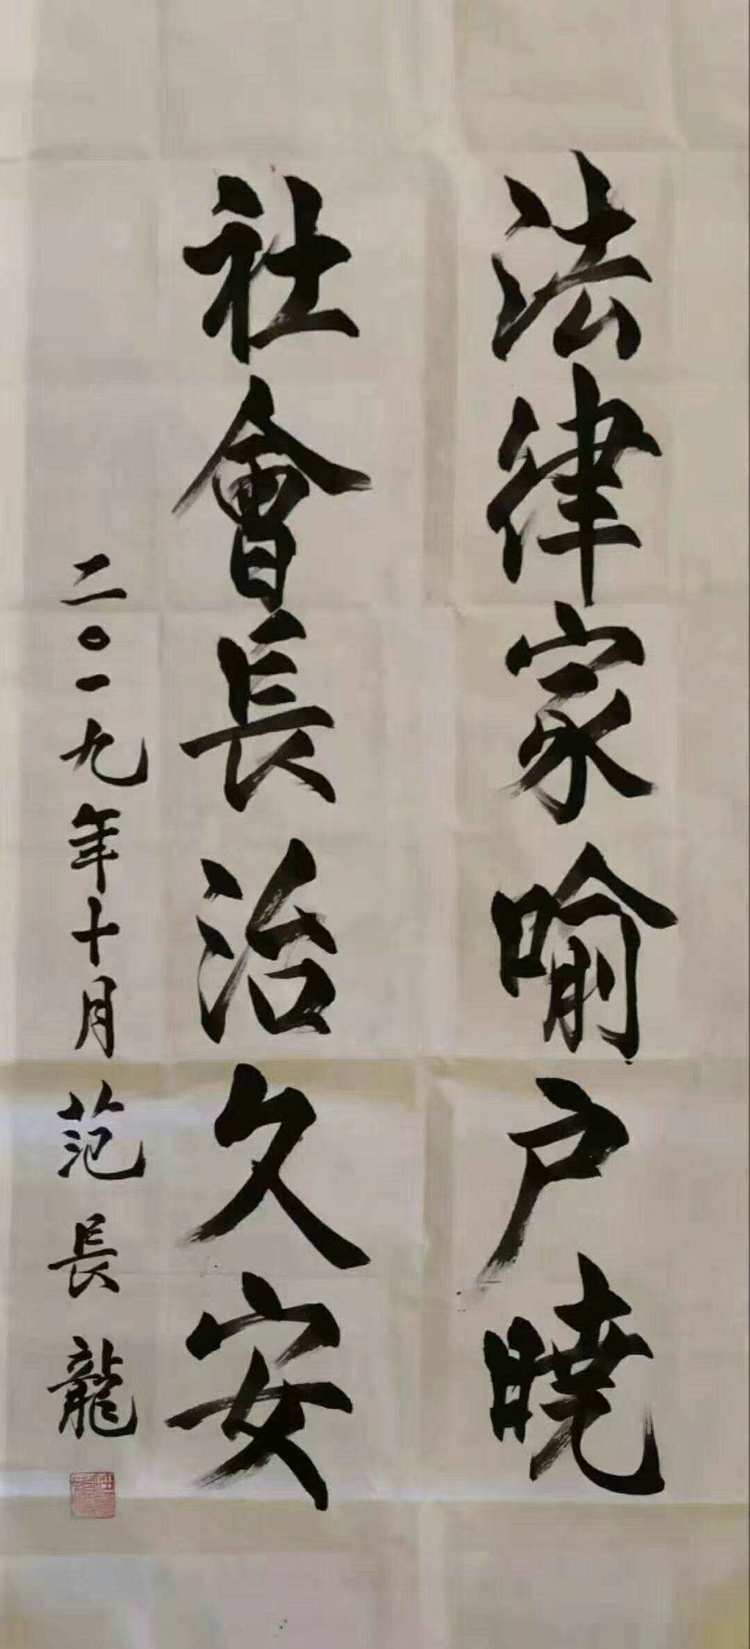 法律家喻户晓
社會長治久安
二〇一九年十月范長龍